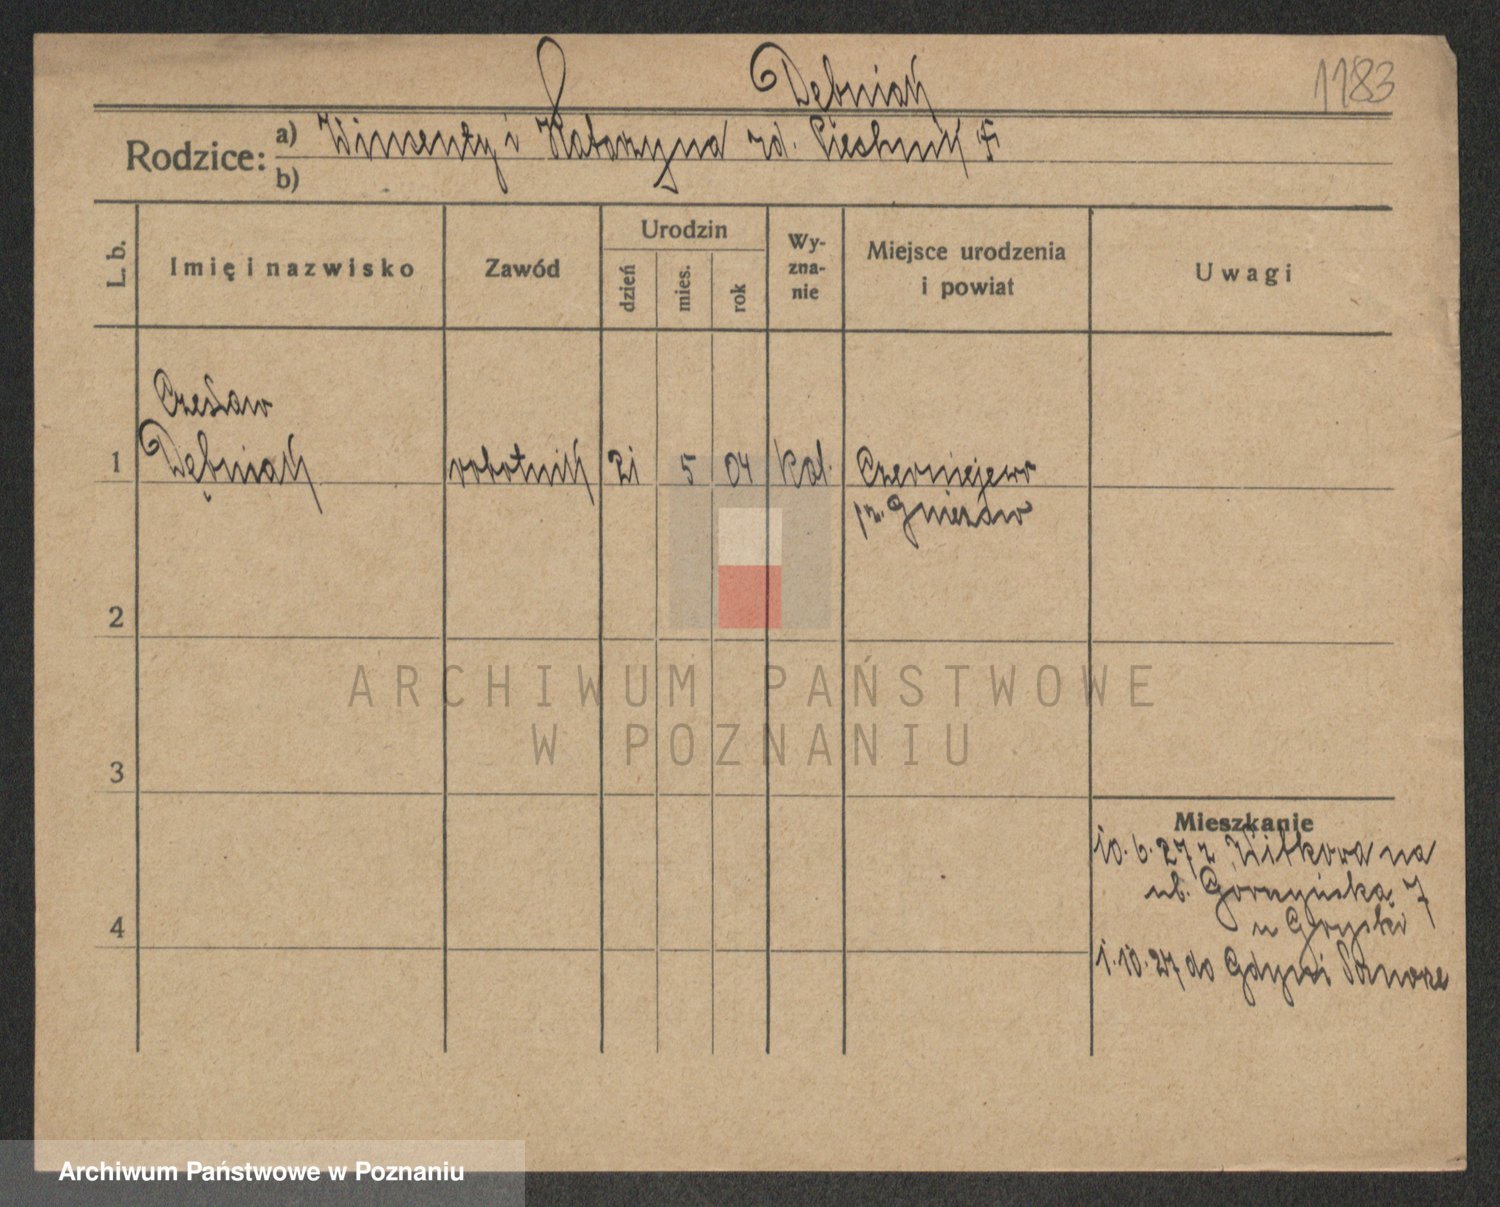 Dębniak
1183
Rodzice:
a) Wincenty i Katarzyna rd. Ciechnik
b)
L. b.
Imię i nazwisko
Zawód
Urodzin
dzień
mies.
rok
Wy-
zna-
nie
Miejsce urodzenia
i powiat
Uwagi
Czesław
1 Dębniak robotnik 21 5 04 kat. Czerniejewo
pow. Gniezno
2
ARCHIWUM PAŃSTWOWE
W POZNANIU
3
Mieszkanie
10. 6. 27 z Witkowa na
ul. Górczyńska 7
u
4
1. 10. 27 do Gdyni
Archiwum Państwowe w Poznaniu